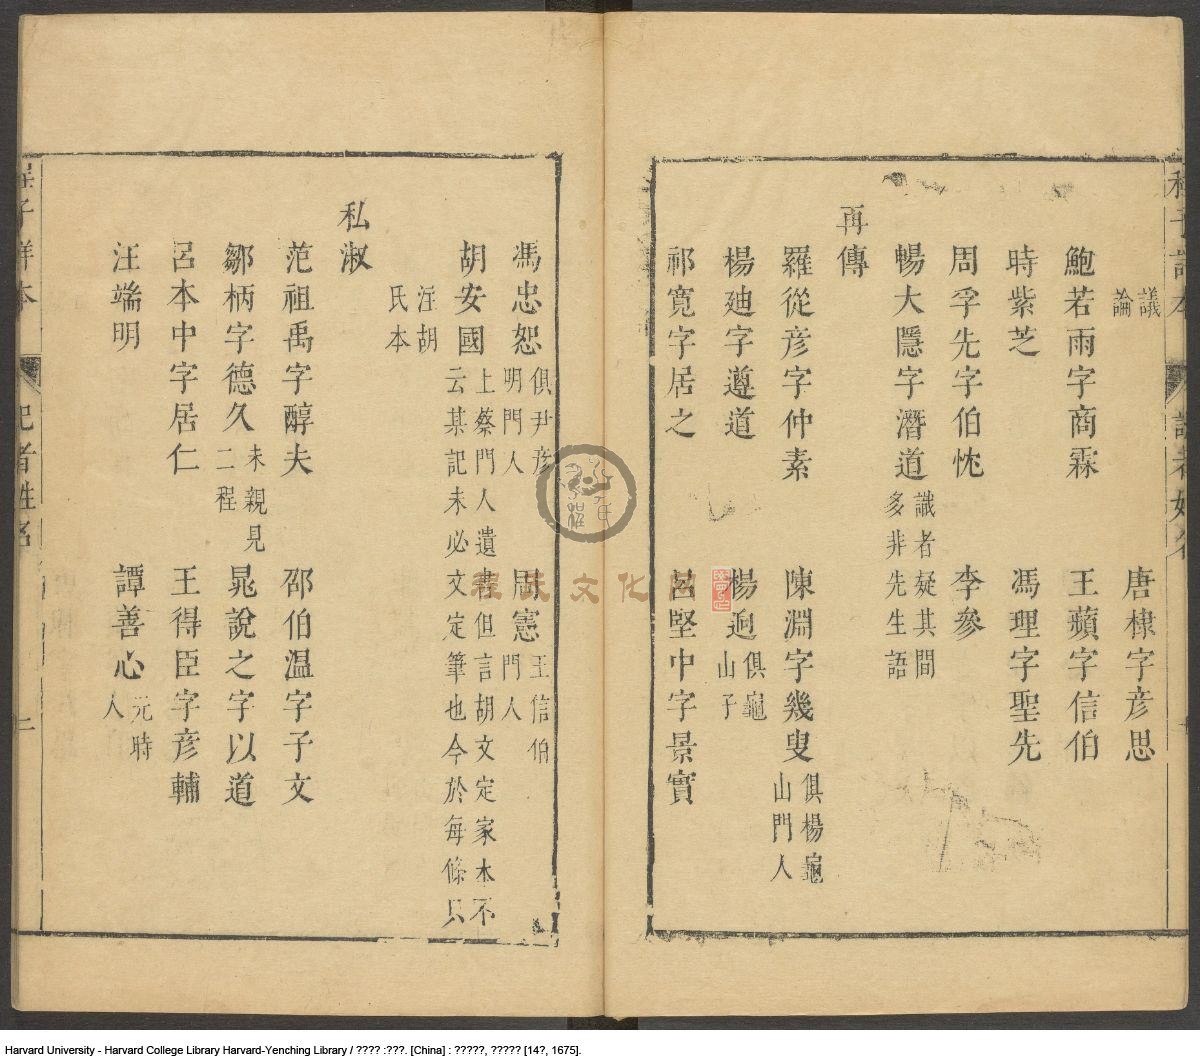 議論 唐棣字彥思
鮑若雨字商霖 王蘋字信伯
時紫芝 馮理字聖先
周孚先字伯忱 李參
暢大隱字潛道 識者疑其間多非先生語
再傳
羅從彥字仲素 陳淵字幾叟 俱楊龜山門人
楊廸字遵道 楊逈 俱龜山子
祁寬字居之 呂堅中字景實
馮忠恕 俱尹彥明門人 周憲 王信伯門人
胡安國 上蔡門人遺書但言胡文定家本不云某記未必文定筆也今於每條只
注胡氏本
私淑
范祖禹字醇夫 邵伯溫字子文
鄒柄字德久 未親見二程 晁說之字以道
呂本中字居仁 王得臣字彥輔
汪端明 譚善心 元時人
程氏文化网
Harvard University - Harvard College Library Harvard-Yenching Library / ???? :???. [China] : ?????, ????? [14?, 1675].